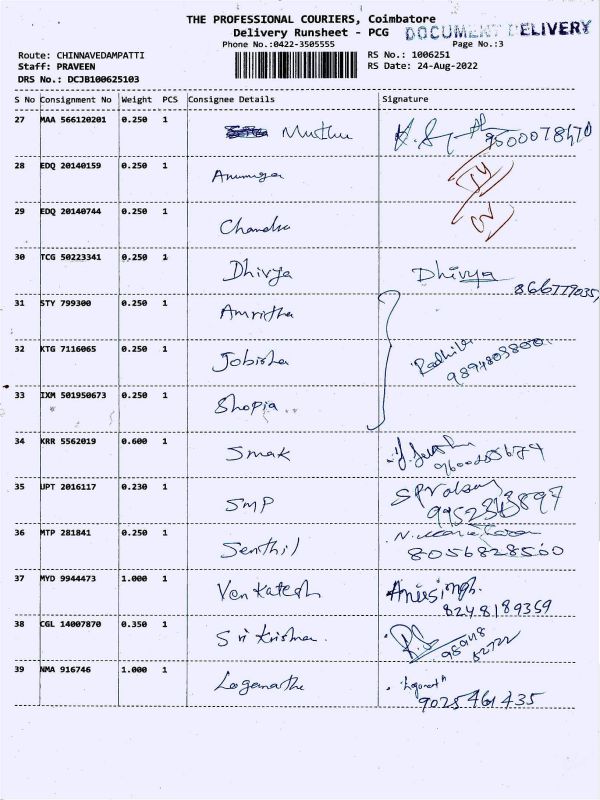 THE PROFESSIONAL COURIERS, Coimbatore
Delivery Runsheet - PCG DOCUMENT DELIVERY
Phone No.:0422-3505555 Page No.:3
Route: CHINNAVEDAMPATTI RS No.: 1006251
Staff: PRAVEEN RS Date: 24-Aug-2022
DRS No.: DCJB100625103
S No Consignment No Weight PCS Consignee Details Signature
27 MAA 566120201 0.250 1 Muthu
28 EDQ 20140159 0.250 1
29 EDQ 20140744 0.250 1 Chandra
30 TCG 50223341 0.250 1 Dhivya Dhivya
31 STY 799300 0.250 1 Amritha
32 KTG 7116065 0.250 1 Jobisha
33 IXM 501950673 0.250 1 Shopia
34 KRR 5562019 0.600 1 Smak
35 UPT 2016117 0.230 1 SMP
36 MTP 281841 0.250 1 Senthil 8056828500
37 MYD 9944473 1.000 1 Venkatesh
8248189359
38 CGL 14007870 0.350 1 Sri Krishna
39 NMA 916746 1.000 1 Loganatha
9025461435